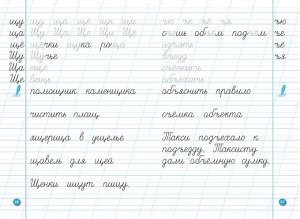 щу щу ща щё щк щи
Щу Щу Ща Ще Ще Щи
ще щётки щука роща
Щу Щучье
Ща ещё
Ще вещь
помощник каменщика
чистить площ
ящерица в ущелье
щавель для щей
Щенки ищут пищу.
ъю ъе ъё ъя ъю
съешь объём подъём ъе
изъять ъё
въезд ъя
съехать
объехать
объяснить правило
съёмка объекта
Такси подъехало к
подъезду. Таксисту
дали объёмную сумку.